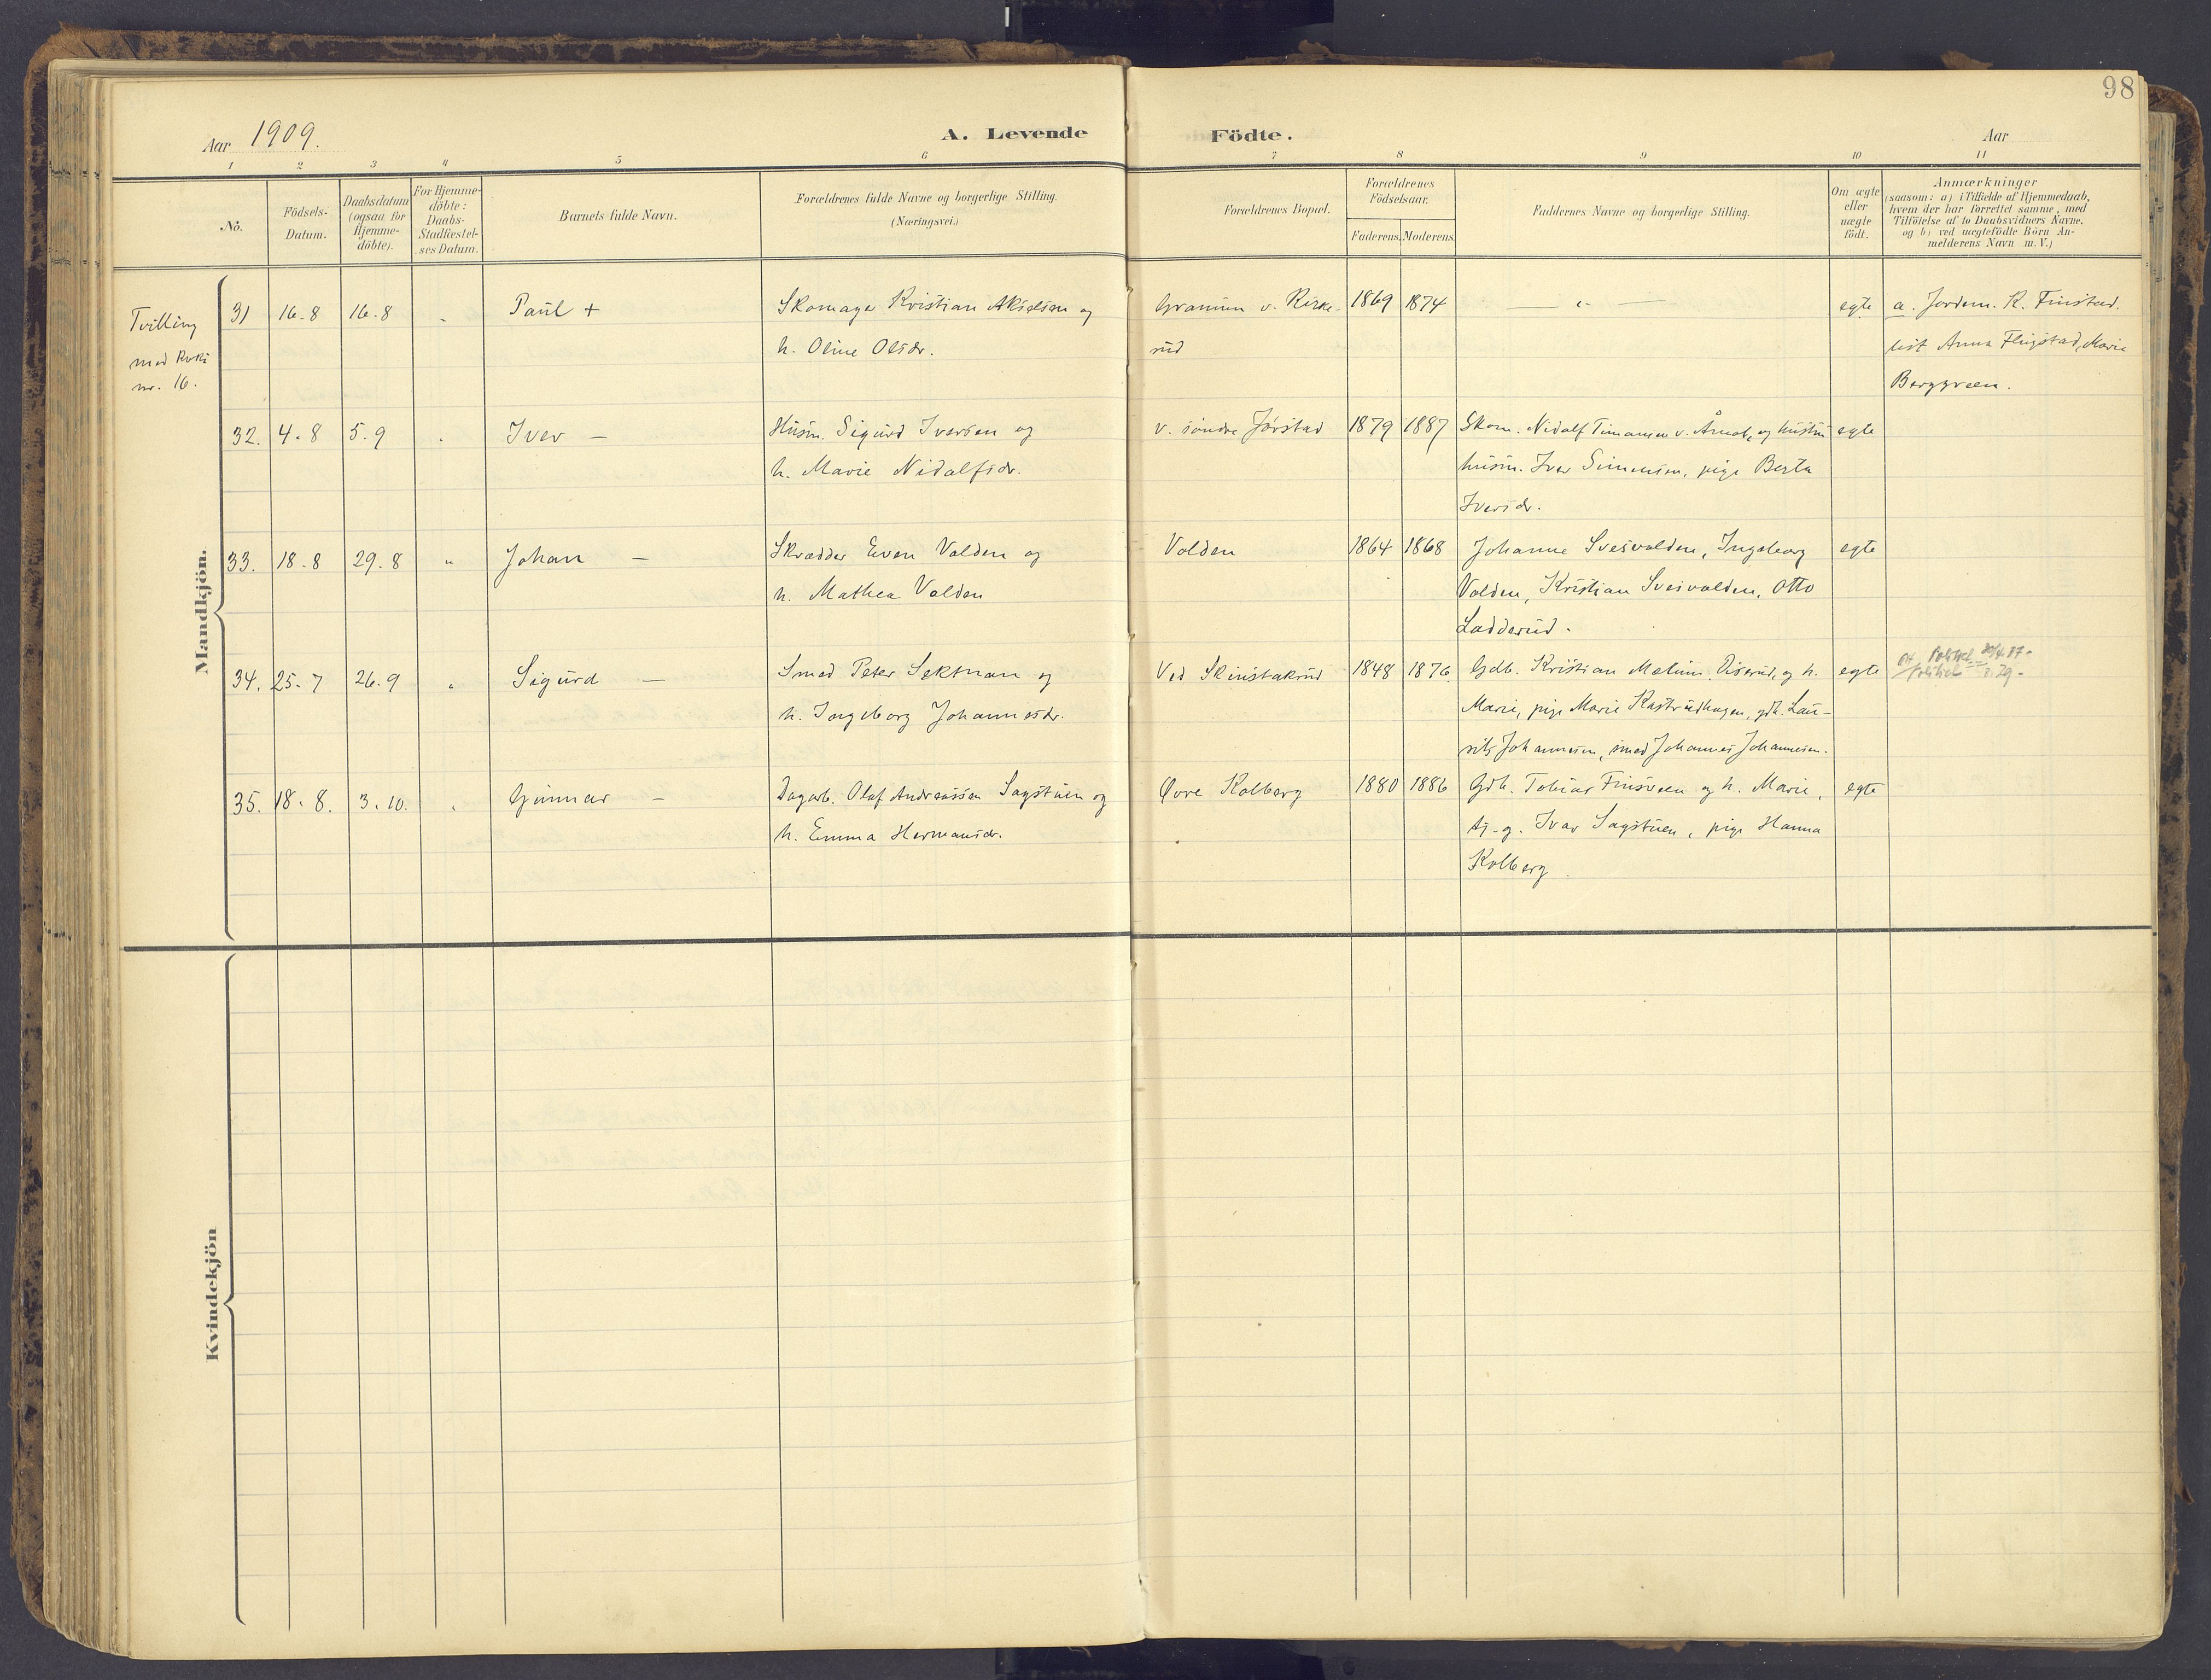 98
Aar 1909.
A. Levende Födte.
Aar
1 2 3 4 5 6 7 8 9 10 11
No.
Födsels-Datum.
Daabsdatum (ogsaa for Hjemme-döbte).
For Hjemme-döbte: Daabs-Stadfæstel-ses Datum.
Barnets fulde Navn.
Forældrenes fulde Navne og borgerlige Stilling.
(Næringsvei.)
Forældrenes Bopæl.
Forældrenes Födselsaar.
Faderens. Moderens.
Faddernes Navne og borgerlige Stilling.
Om ægte eller uægte födt.
Anmærkninger
(saasom: a) i Tilfælde af Hjemmedaab,
hvem der har forrettet samme, med
Tilföielse af to Daabsvidners Navne.
og b) ved uægtefödte Börn An-
melderens Navn m. V.)
Mandkjön.
Tvilling
med
nr. 16.
31 16-8 16-8 Paul + Skomager Kristian Akselsen og Granum v. Kirke- 1869 1874 — " — egte a. Jordem. K. Finstad.
h. Oline Olsdr. rud Anna Flugstad, Marie
Berggreen.
32. 4-8 5-9 Iver — Husm. Sigurd Iversen og v. søndre Jørstad 1879 1887 Skom. Nidolf v. og hustru egte
h. Marie Nidolfsdr. husm. Iver Simensen, pige Berta
Iversdr.
33. 18-8 29-8 " Johan — Skrædder Even Volden og Volden 1864 1868 Johanne Svesvolden, Ingeborg egte
h. Mathea Volden Volden, Kristian Svesvolden, Otto
Ladderud.
34. 25-7 26-9 Sigurd — Smed Peter Sektnan og Ved Skinstakrud 1848 1876 Gdb. Kristian Mælum og h. egte
h. Ingeborg Johannesdr. Marie, pige Marie Kastrudhagen, gdb. Lau-
rits Johannesen, smed Johannes Johannesen.
35. 18-8. 3-10. Gunnar — Dagarb. Olaf Andreassen Sagstuen og Øvre Kolberg 1880 1886 Gdb. Tobias Finsveen og h. Marie, egte
h. Emma Hermansdr. tj-g. Ivar Sagstuen, pige Hanna
Kolberg
Kvindekjön